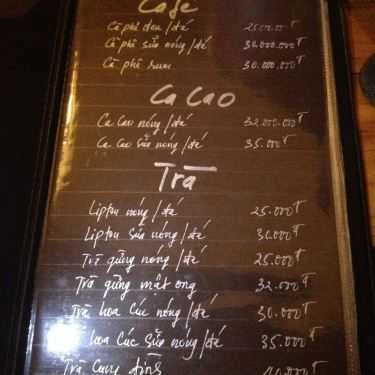 Cafe
Cà phê đen/đá 25.000.000₸
Cà phê sữa nóng/đá 30.000.000₸
Cà phê rum 30.000.000₸
Ca Cao
Ca Cao nóng/đá 32.000.000₸
Ca Cao sữa nóng/đá 35.000₸
Trà
Lipton nóng/đá 25.000₸
Lipton sữa nóng/đá 30.000₸
Trà gừng nóng/đá 25.000₸
Trà gừng mật ong 32.000₸
Trà hoa Cúc nóng/đá 30.000₸
hoa Cúc sữa nóng/đá 35.000₸
Trà Cung đình